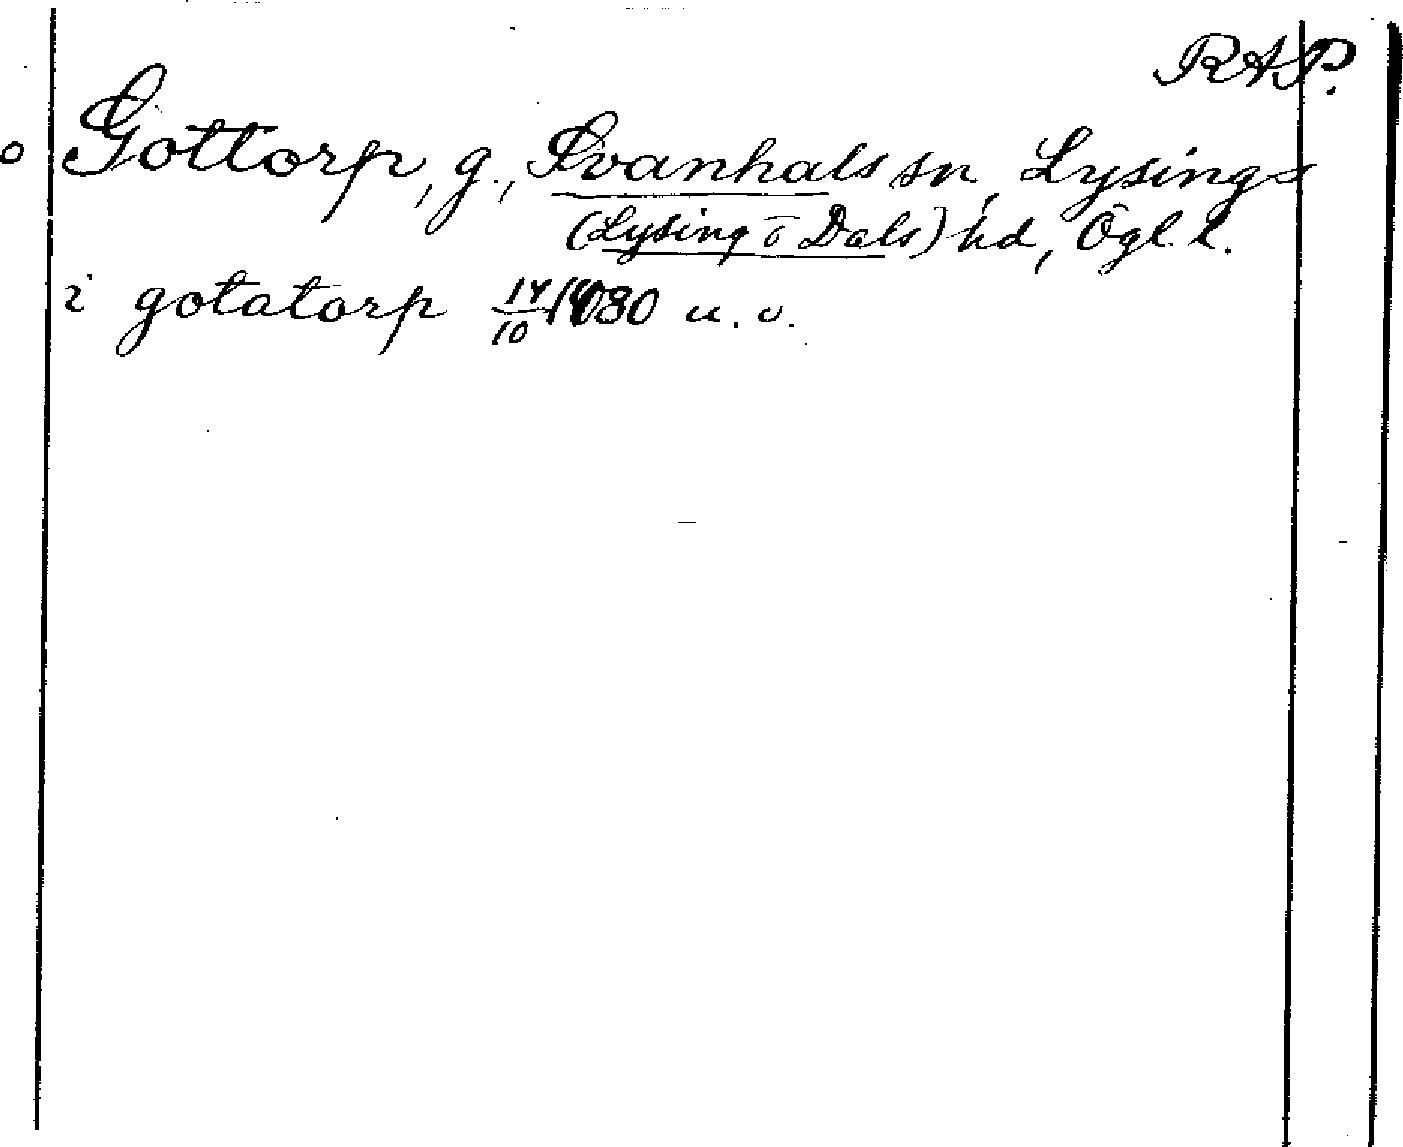 RAP.
o Gottorp, g., Svanhals sn, Lysings
(Lysing o Dals) hd, Ögl. l.
i gotatorp 14/10 1480 u. v.